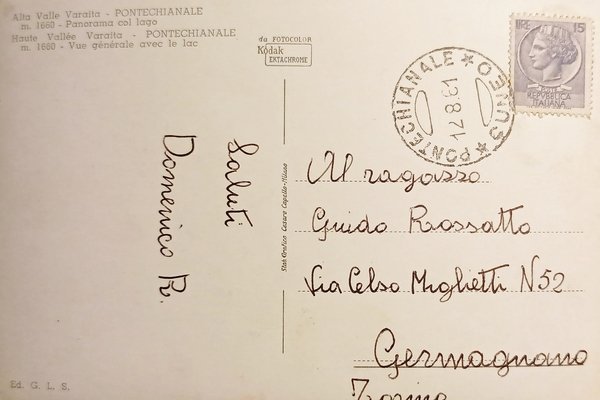 Alta Valle Varaita - PONTECHIANALE
m. 1660 - Panorama col lago
Haute Vallée Varaita - PONTECHIANALE
m. 1660 - Vue générale avec le lac
da FOTOCOLOR
Kodak
EKTACHROME
LIRE 15
POSTE
REPVBBLICA
ITALIANA
PONTECHIANALE * CUNEO *
19.8.71
Saluti
Domenico R.
Stab. Grafico Cesare Capello - Milano
Al ragasso
Guido Rossatto
Via Celso Miglietti N 52
Germagnano
Torino
Ed. G. L. S.